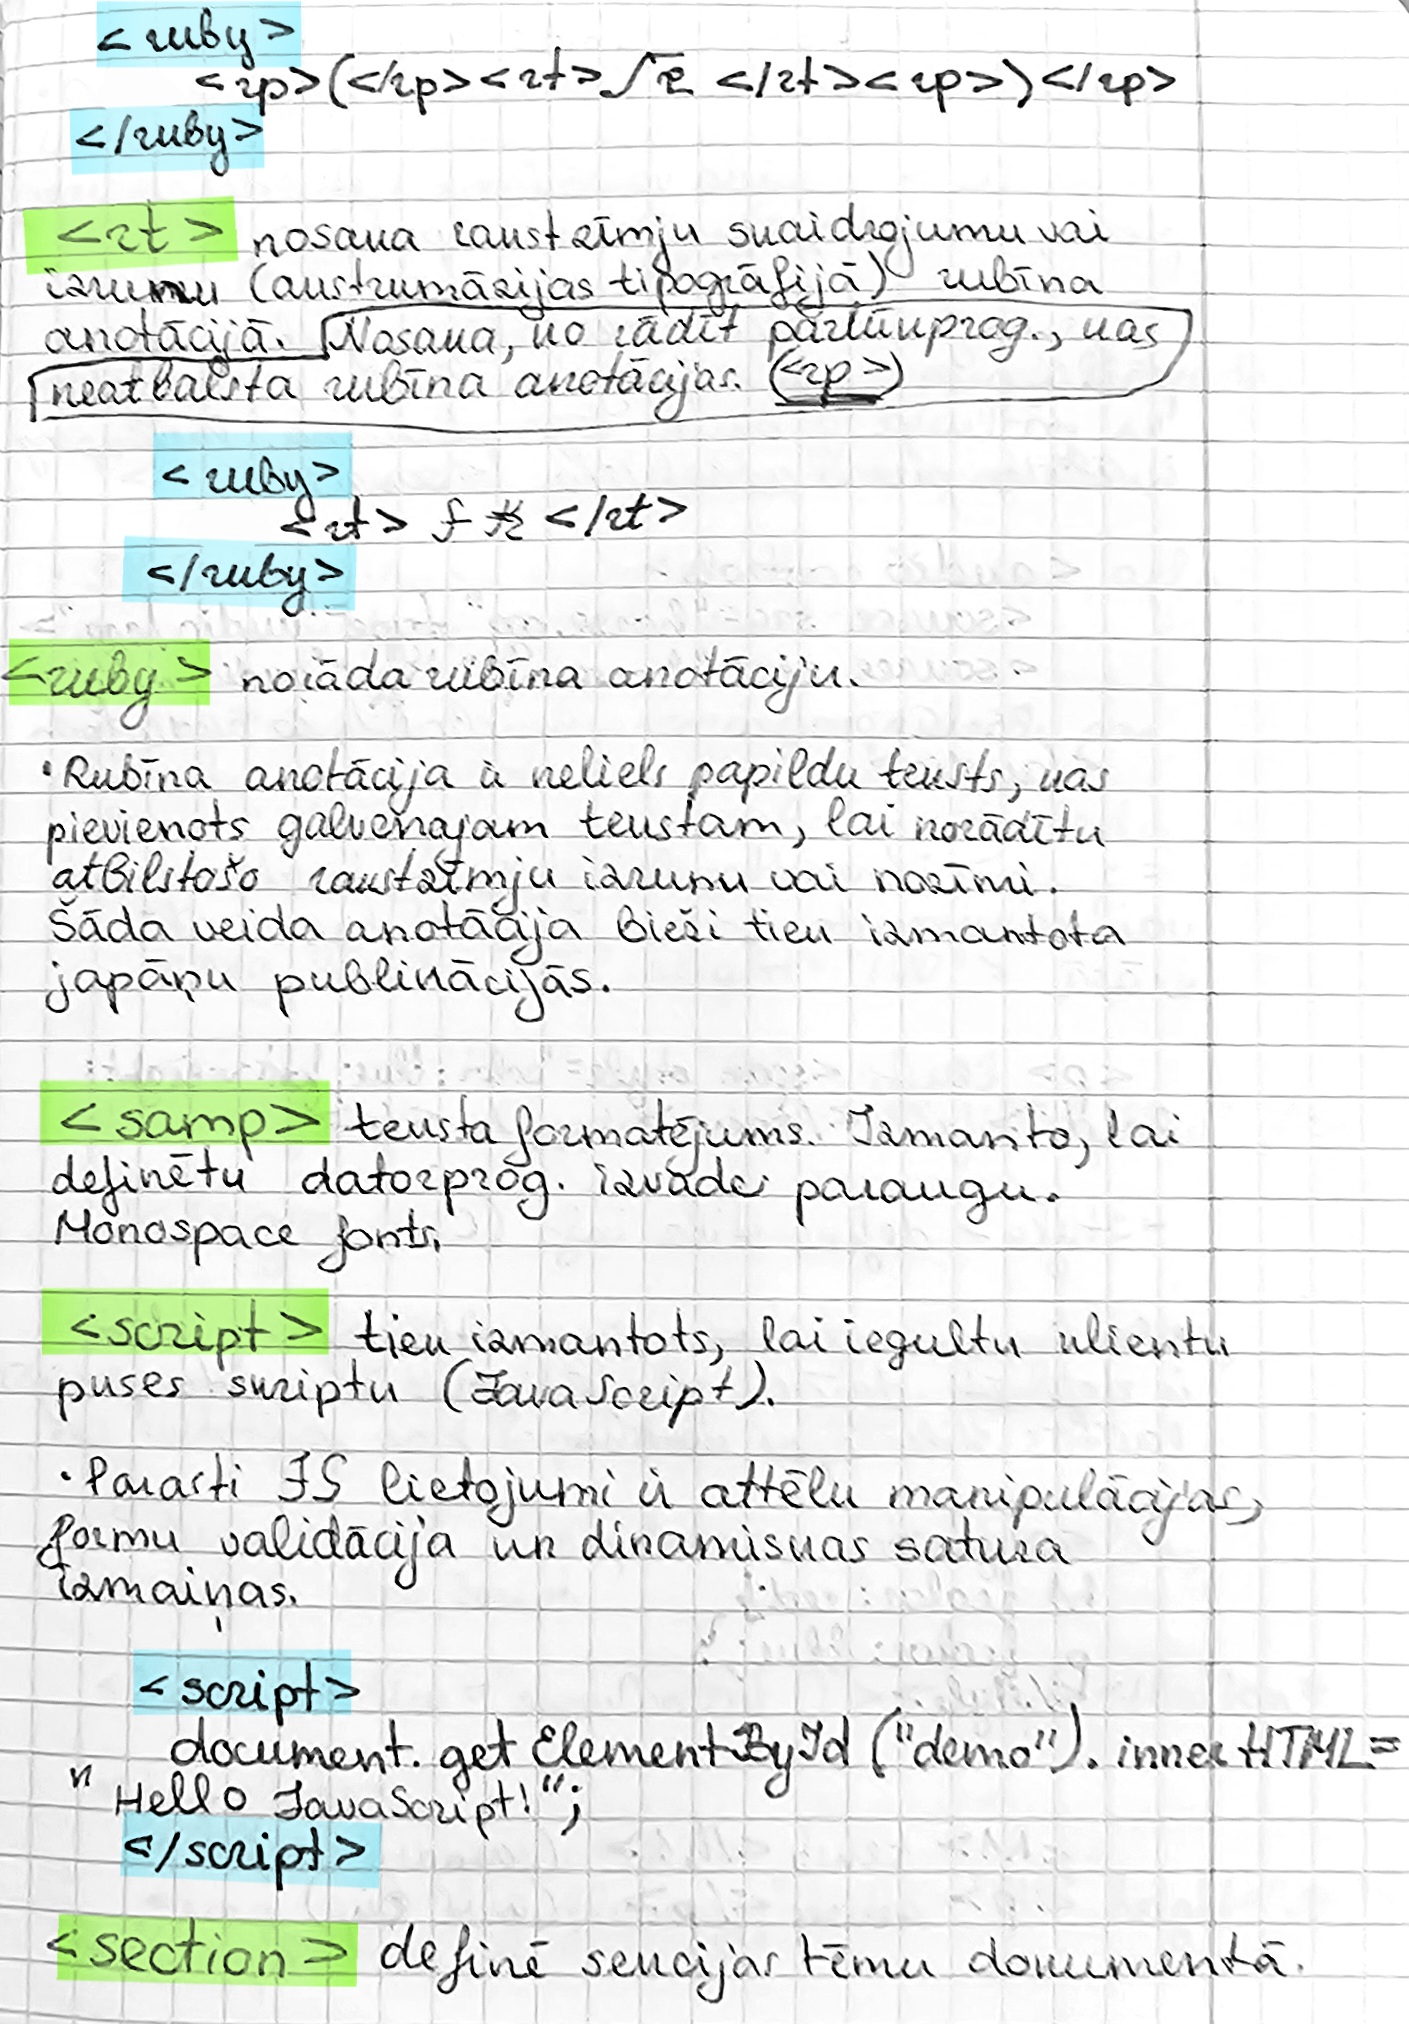 <ruby>
<rp>(</rp><rt> </rt><rp>)</rp>
</ruby>
<rt> nosaka rakstzīmju skaidrojumu vai
izrunu (austrumāzijas tipogrāfijā) rubīna
anotācijā. Nosaka, ko rādīt pārlūkprog., kas
neatbalsta rubīna anotācijas. (<rp>)
<ruby>
<rt> </rt>
</ruby>
<ruby> norāda rubīna anotāciju.
• Rubīna anotācija ir neliels papildu teksts, kas
pievienots galvenajam tekstam, lai norādītu
atbilstošo rakstzīmju izrunu vai nozīmi.
Šāda veida anotācija bieži tiek izmantota
japāņu publikācijās.
<samp> teksta formatējums. Izmanto, lai
definētu datorprog. izvades paraugu.
Monospace fonts.
<script> tiek izmantots, lai iegultu klientu
puses skriptu (JavaScript).
• Parasti JS lietojumi ir attēlu manipulācijas,
formu validācija un dinamiskas satura
izmaiņas.
<script>
document.getElementById("demo").innerHTML=
"Hello JavaScript!";
</script>
<section> definē sekcijas tēmu dokumentā.